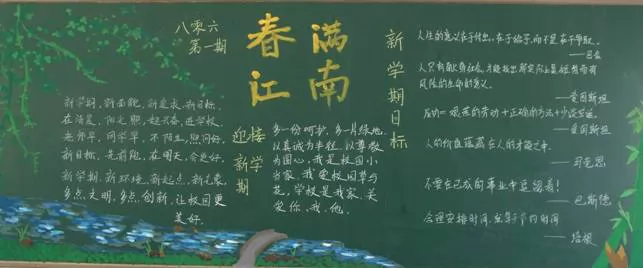 八零六
第一期
春满
江南
新学期，新面貌，新建教，新目标，
在清晨，阳光照，赵兴奋，进学校，
老师早，同学早，不陌生，照问好，
新目标，是前院，在明天，会更好，
新学期，新环境，新起点，新气象，
多点文明，多点创新，让校园更
美好。
迎接
新学
期
多一份呵护，多一片绿地，
以真诚为半径，以尊敬
为圆心，我是校园小
当家，我爱校园草与
花，学校是我家，关
爱你、我、他。
新学期目标
人生的意义在于付出，在于给予，而不是在于争取。
——巴金
人只有献身社会，才能找出那实际上是短暂而有
风险的生命的意义。
——爱因斯坦
成功=艰苦的劳动+正确的方法+少说空话。
——爱因斯坦
人的价值蕴藏在人的才能之中。
——马克思
不要在已成的事业中逗留着！
——巴斯德
合理安排时间，就等于节约时间
——培根